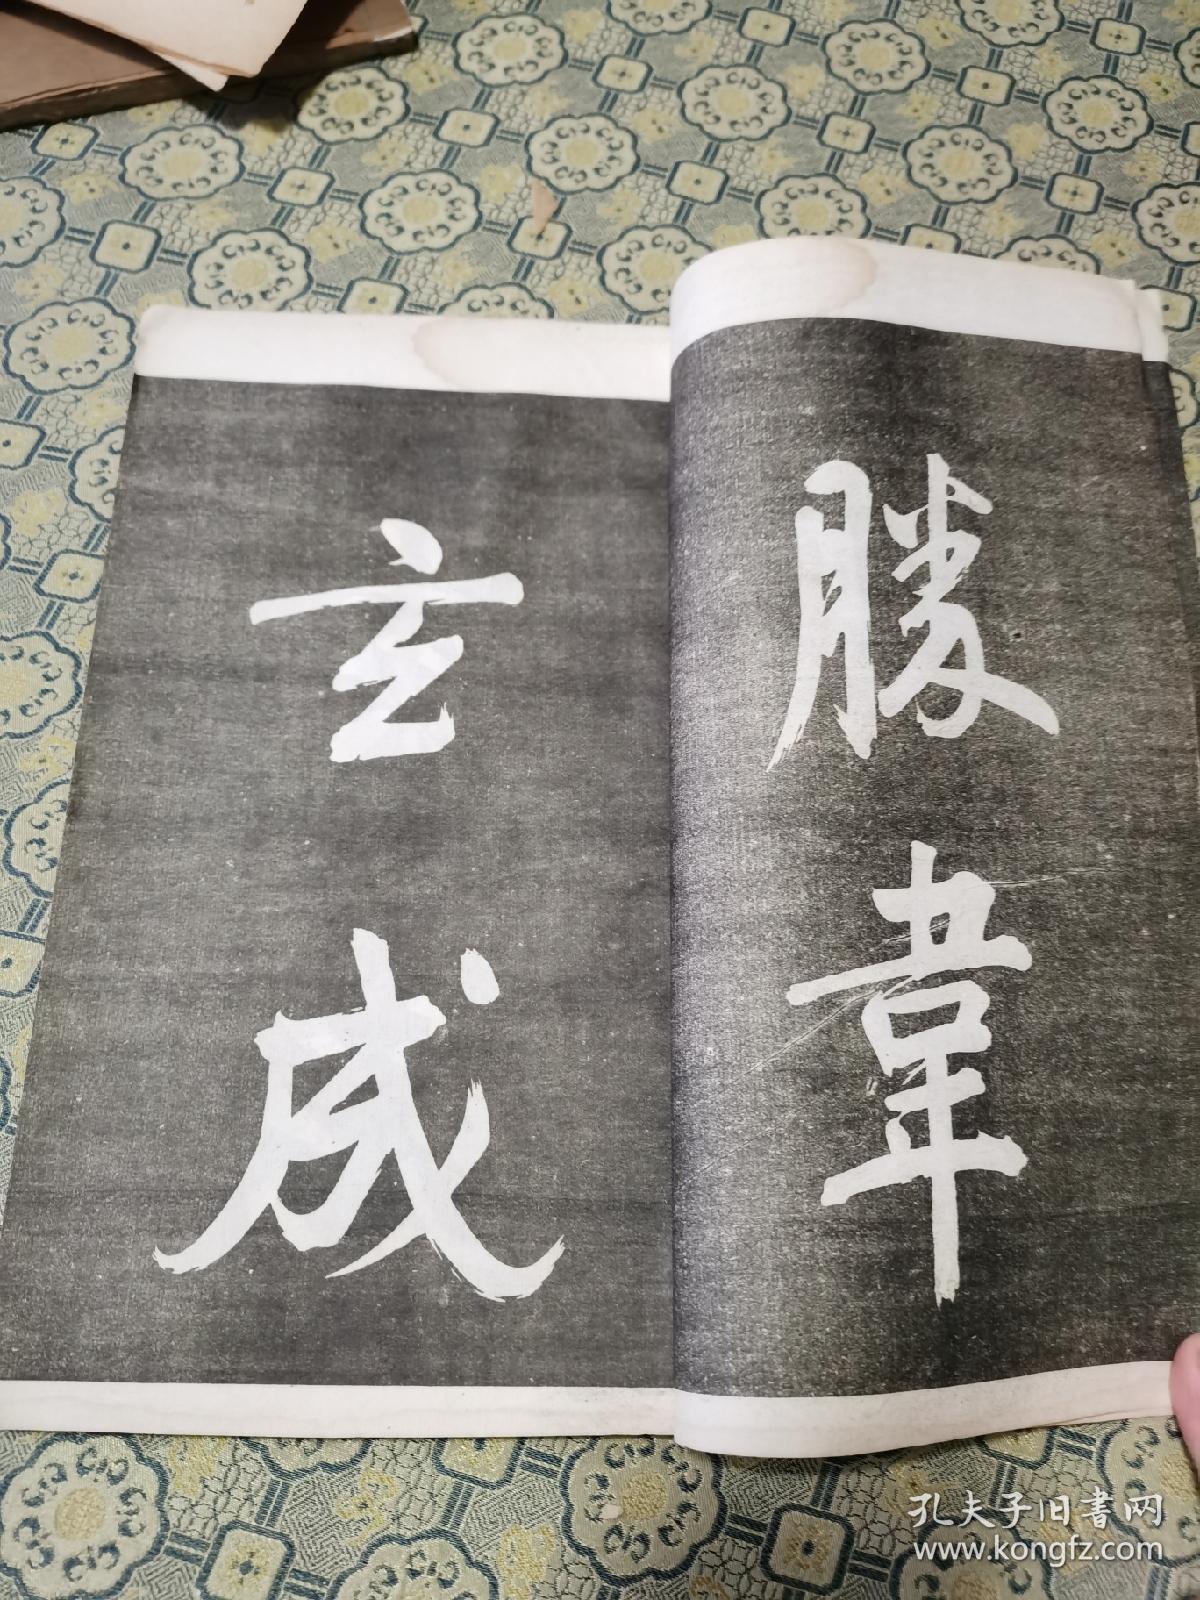 勝韋
玄成
孔夫子旧書网
www.kongfz.com